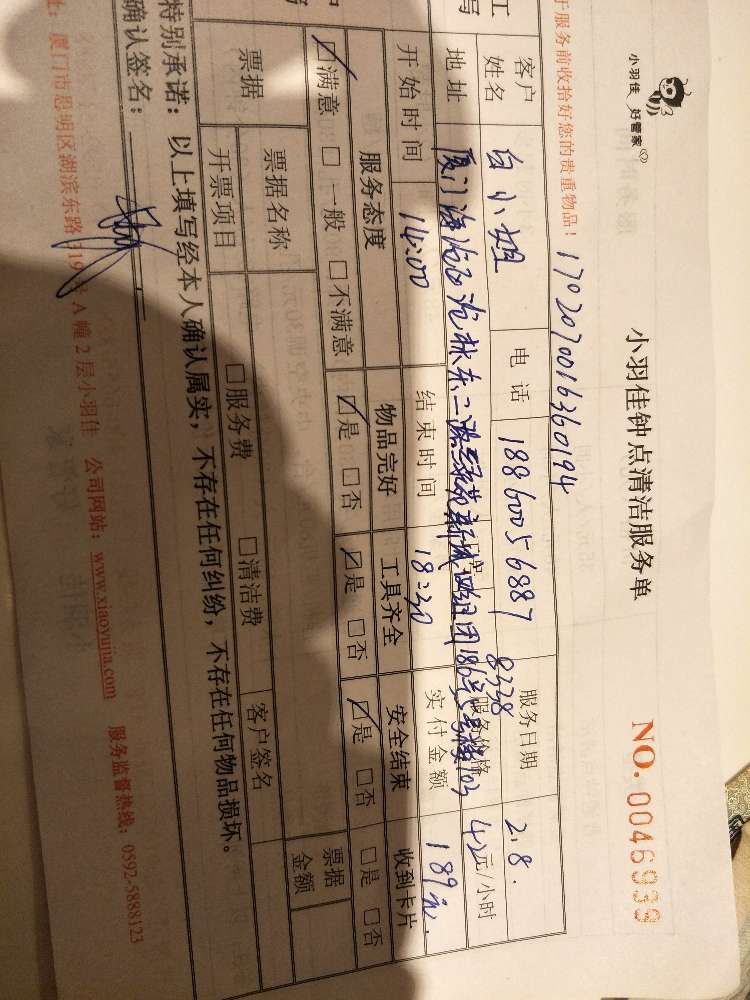 小羽佳 好管家
小羽佳钟点清洁服务单
NO. 0046939
于服务前收拾好您的贵重物品！
1702070016360194
客户姓名 白小姐 电话 18860056887 服务日期 2.8.
8338
地址 厦门海沧区沧林东二路绿苑新城四组团186号 42元/小时
开始时间 14:00 结束时间 18:30 实付金额 189元.
服务态度 物品完好 工具齐全 安全结束 收到卡片
☑满意 □一般 □不满意 ☑是 □否 ☑是 □否 ☑是 □否 □是 □否
票据 票据名称 票据金额
开票项目 □服务费 □清洁费 客户签名
特别承诺：以上填写经本人确认属实，不存在任何纠纷，不存在任何物品损坏。
确认签名：
址：厦门市思明区湖滨东路319号A幢2层小羽佳 公司网站：www.xiaoyujia.com 服务监督热线：0592-5888123